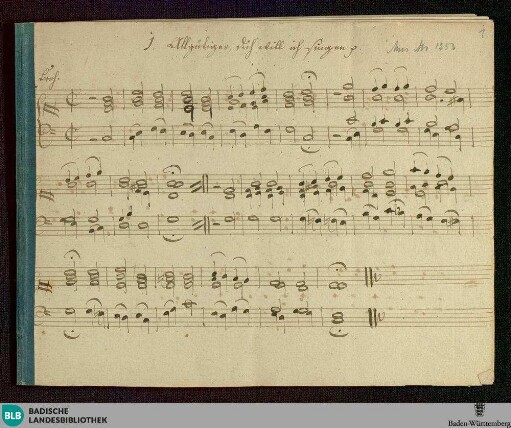 1. Allgütiger, dich will ich singen p Mus. Hs. 1353 1
Froh.
BLB BADISCHE
LANDESBIBLIOTHEK
Baden-Württemberg